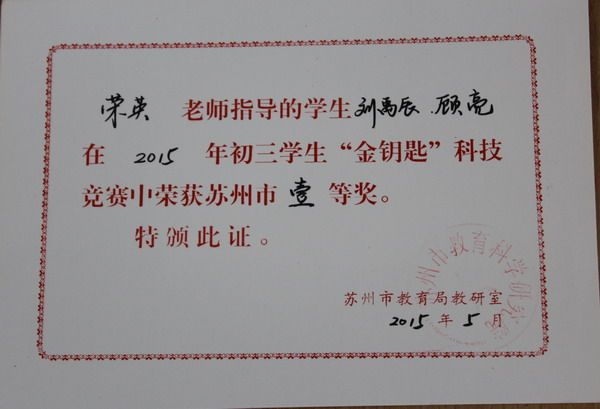 荣英 老师指导的学生刘禹辰、顾亮
在 2015 年初三学生“金钥匙”科技
竞赛中荣获苏州市 壹 等奖。
特颁此证。
苏州市教育科学研究院
苏州市教育局教研室
2015 年 5 月